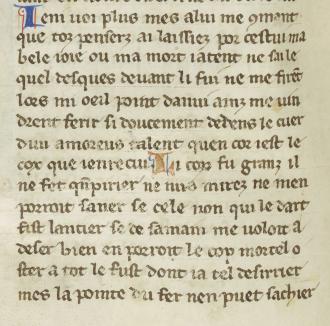 Iem uoi plus mes a lui me comant
que toz pensers ai laissiez por cestui ma
bele ioie ou ma mort iatent ne sai le
quel des ques deuant li fui ne me firent
lors mi oeil point danui ainz me uin
drent ferir si doucement dedens le cuer
dun amoreus talent quen cor iest le
cox que ien recui Li cox fu granz il
ne fet quenpirier ne nus mirez ne men
porroit saner se cele non qui le dart
fist lancier se de sa main me uoloit a
deser bien en porroit le cop mortel o
ster a tot le fust dont ia tel desirrier
mes la pointe du fer nen puet sachier